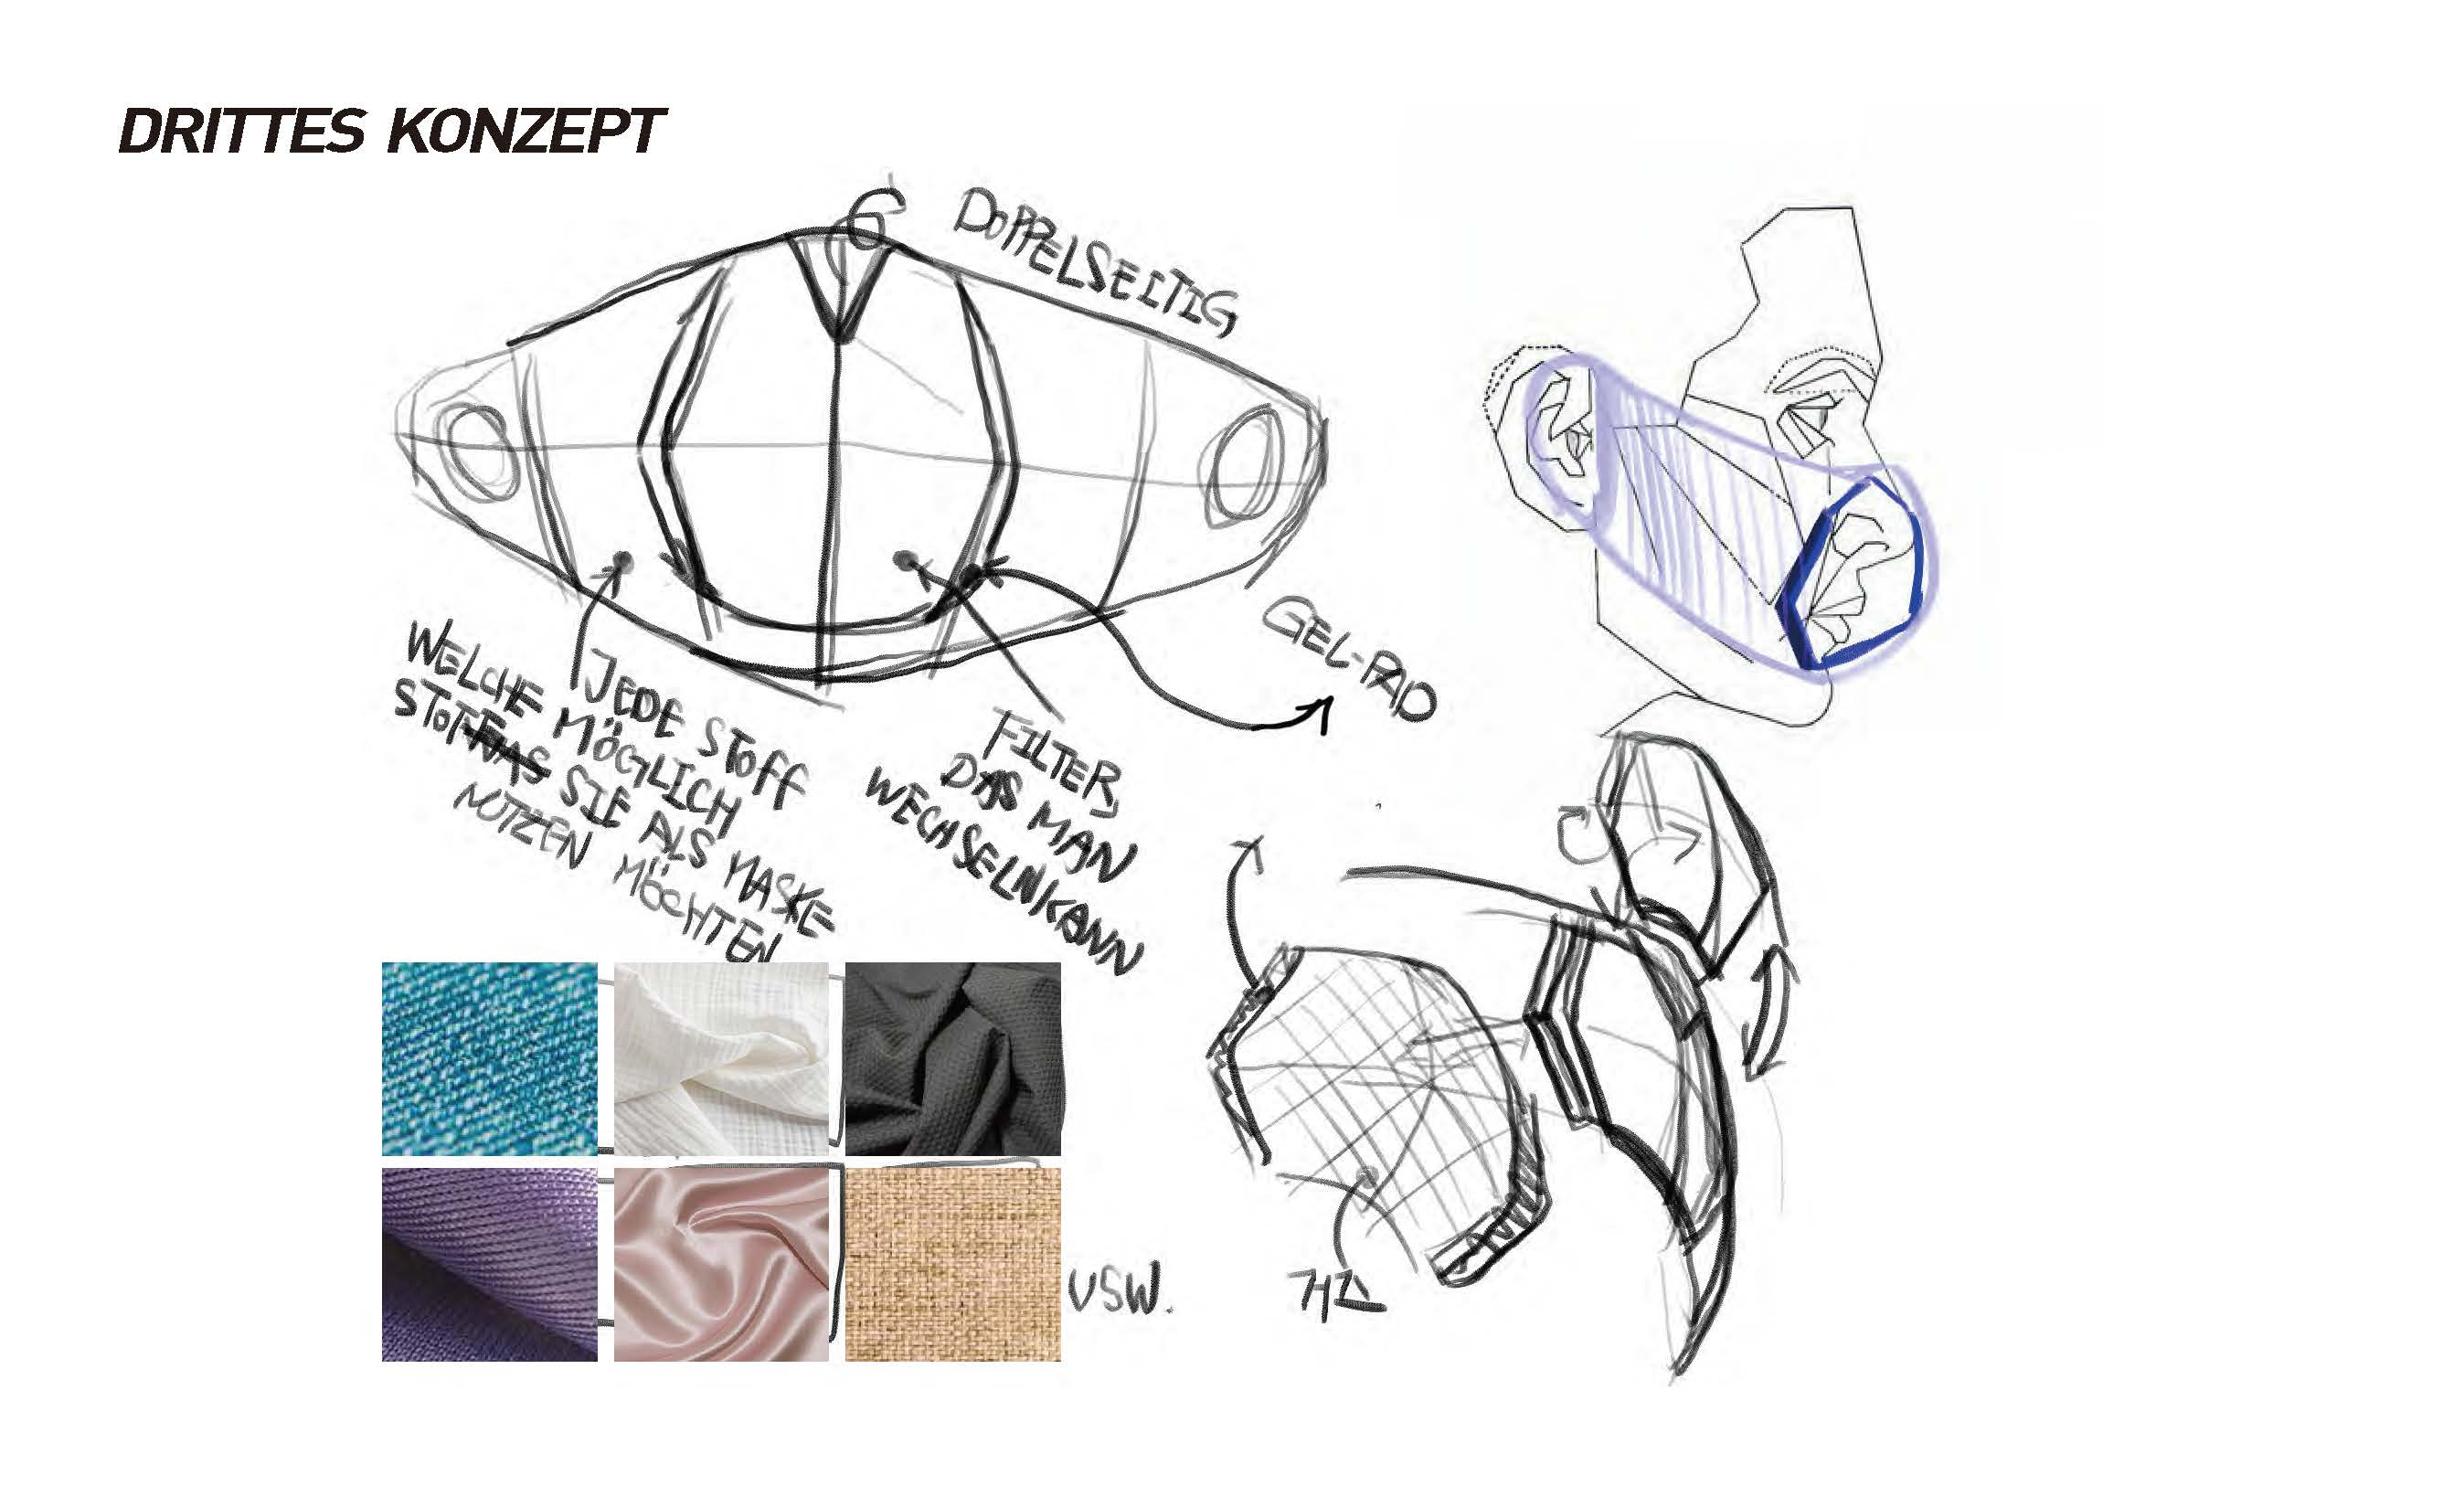 DRITTES KONZEPT
DOPPELSEITIG
JEDE STOFF
WELCHE MÖGLICH
SIE ALS MASKE
NUTZEN MÖCHTEN
FILTER,
DAS MAN
WECHSELN KANN
GEL-PAD
USW.